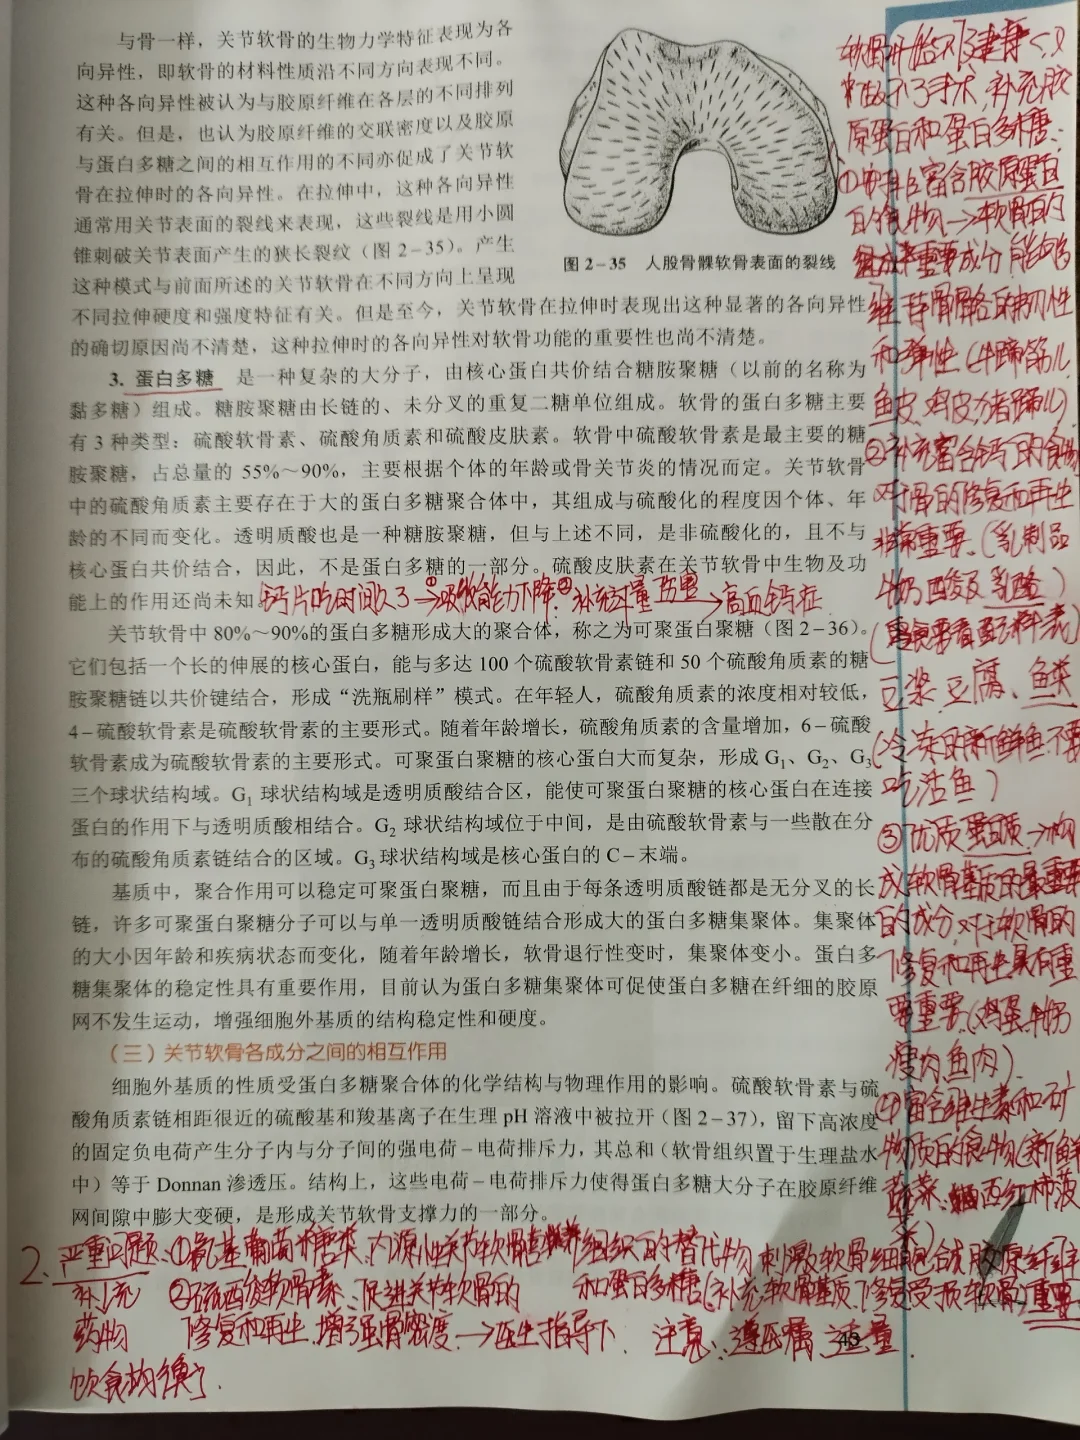 与骨一样，关节软骨的生物力学特征表现为各
向异性，即软骨的材料性质沿不同方向表现不同。
这种各向异性被认为与胶原纤维在各层的不同排列
有关。但是，也认为胶原纤维的交联密度以及胶原
与蛋白多糖之间的相互作用的不同亦促成了关节软
骨在拉伸时的各向异性。在拉伸中，这种各向异性
通常用关节表面的裂线来表现，这些裂线是用小圆
锥刺破关节表面产生的狭长裂纹（图2-35）。产生
这种模式与前面所述的关节软骨在不同方向上呈现
不同拉伸硬度和强度特征有关。但是至今，关节软骨在拉伸时表现出这种显著的各向异性
的确切原因尚不清楚，这种拉伸时的各向异性对软骨功能的重要性也尚不清楚。
图2-35 人股骨髁软骨表面的裂线
3. 蛋白多糖 是一种复杂的大分子，由核心蛋白共价结合糖胺聚糖（以前的名称为
黏多糖）组成。糖胺聚糖由长链的、未分叉的重复二糖单位组成。软骨的蛋白多糖主要
有3种类型：硫酸软骨素、硫酸角质素和硫酸皮肤素。软骨中硫酸软骨素是最主要的糖
胺聚糖，占总量的55%～90%，主要根据个体的年龄或骨关节炎的情况而定。关节软骨
中的硫酸角质素主要存在于大的蛋白多糖聚合体中，其组成与硫酸化的程度因个体、年
龄的不同而变化。透明质酸也是一种糖胺聚糖，但与上述不同，是非硫酸化的，且不与
核心蛋白共价结合，因此，不是蛋白多糖的一部分。硫酸皮肤素在关节软骨中生物及功
能上的作用还尚未知。
钙片吃时间久了→①吸收能力下降：②补充过量 →高血钙症
关节软骨中80%～90%的蛋白多糖形成大的聚合体，称之为可聚蛋白聚糖（图2-36）。
它们包括一个长的伸展的核心蛋白，能与多达100个硫酸软骨素链和50个硫酸角质素的糖
胺聚糖链以共价键结合，形成“洗瓶刷样”模式。在年轻人，硫酸角质素的浓度相对较低，
4-硫酸软骨素是硫酸软骨素的主要形式。随着年龄增长，硫酸角质素的含量增加，6-硫酸
软骨素成为硫酸软骨素的主要形式。可聚蛋白聚糖的核心蛋白大而复杂，形成G₁、G₂、G₃
三个球状结构域。G₁球状结构域是透明质酸结合区，能使可聚蛋白聚糖的核心蛋白在连接
蛋白的作用下与透明质酸相结合。G₂球状结构域位于中间，是由硫酸软骨素与一些散在分
布的硫酸角质素链结合的区域。G₃球状结构域是核心蛋白的C-末端。
基质中，聚合作用可以稳定可聚蛋白聚糖，而且由于每条透明质酸链都是无分叉的长
链，许多可聚蛋白聚糖分子可以与单一透明质酸链结合形成大的蛋白多糖集聚体。集聚体
的大小因年龄和疾病状态而变化，随着年龄增长，软骨退行性变时，集聚体变小。蛋白多
糖集聚体的稳定性具有重要作用，目前认为蛋白多糖集聚体可促使蛋白多糖在纤细的胶原
网不发生运动，增强细胞外基质的结构稳定性和硬度。
（三）关节软骨各成分之间的相互作用
细胞外基质的性质受蛋白多糖聚合体的化学结构与物理作用的影响。硫酸软骨素与硫
酸角质素链相距很近的硫酸基和羧基离子在生理pH溶液中被拉开（图2-37），留下高浓度
的固定负电荷产生分子内与分子间的强电荷-电荷排斥力，其总和（软骨组织置于生理盐水
中）等于Donnan渗透压。结构上，这些电荷-电荷排斥力使得蛋白多糖大分子在胶原纤维
网间隙中膨大变硬，是形成关节软骨支撑力的一部分。
手术，补充胶
原蛋白和蛋白多糖：
富含胶原蛋白
的食物→软骨的
组成重要成分 能够
维持骨骼的韧性
和弹性（牛蹄筋儿
鱼皮、鸡皮、猪蹄儿）
②补充富含钙质的食物
对骨的修复和再生
非常重要、（乳制品
牛奶 酸奶 乳酪）
豆浆 豆腐、鱼类
（冷冻的新鲜鱼 不要
吃活鱼）
③优质蛋白质→构
成软骨基质的最重要
的成分，对于软骨的
修复和再生具有重
要重要（鸡蛋、牛奶
瘦肉 鱼肉）
④富含维生素和矿
物质的食物（新鲜
蔬菜、西红柿 菠
菜）
2、严重问题：①氨基葡萄糖类、内源性关节软骨 组织的替代物 刺激软骨细胞合成胶原纤维
补充 ②硫酸软骨素、促进关节软骨的 和蛋白多糖（补充软骨基质、修复受损软骨）重要
药物 修复和再生、增强骨密度→医生指导下、注意：遵医嘱、适量
饮食均衡
43